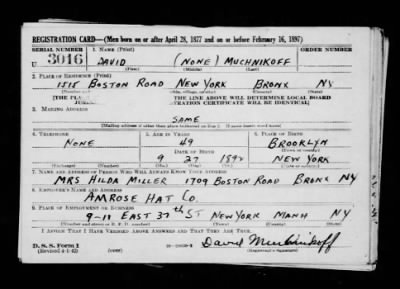 REGISTRATION CARD—(Men born on or after April 28, 1877 and on or before February 16, 1897)
SERIAL NUMBER 1. NAME (Print) ORDER NUMBER
U 3016 DAVID (NONE) MUCHNIKOFF
(First) (Middle) (Last)
2. PLACE OF RESIDENCE (Print)
1515 BOSTON ROAD NEW YORK BRONX NY
[THE PLACE LINE ABOVE WILL DETERMINE LOCAL BOARD
TRATION CERTIFICATE WILL BE IDENTICAL]
3. MAILING ADDRESS
SAME
[Mailing address if other than place indicated on line 2. If same insert word same]
4. TELEPHONE 5. AGE IN YEARS 6. PLACE OF BIRTH
NONE 49 BROOKLYN
DATE OF BIRTH
9 27 1892 NEW YORK
(Exchange) (Number) (Mo.) (Day) (Yr.) (State or country)
7. NAME AND ADDRESS OF PERSON WHO WILL ALWAYS KNOW YOUR ADDRESS
MRS HILDA MILLER 1709 BOSTON ROAD BRONX NY
8. EMPLOYER'S NAME AND ADDRESS
AMROSE HAT CO.
9. PLACE OF EMPLOYMENT OR BUSINESS
9-11 EAST 37TH ST NEW YORK MANH NY
(Number and street or R. F. D. number) (Town) (County) (State)
I AFFIRM THAT I HAVE VERIFIED ABOVE ANSWERS AND THAT THEY ARE TRUE.
D. S. S. Form 1
(Revised 4-1-42) (over) David Muchnikoff